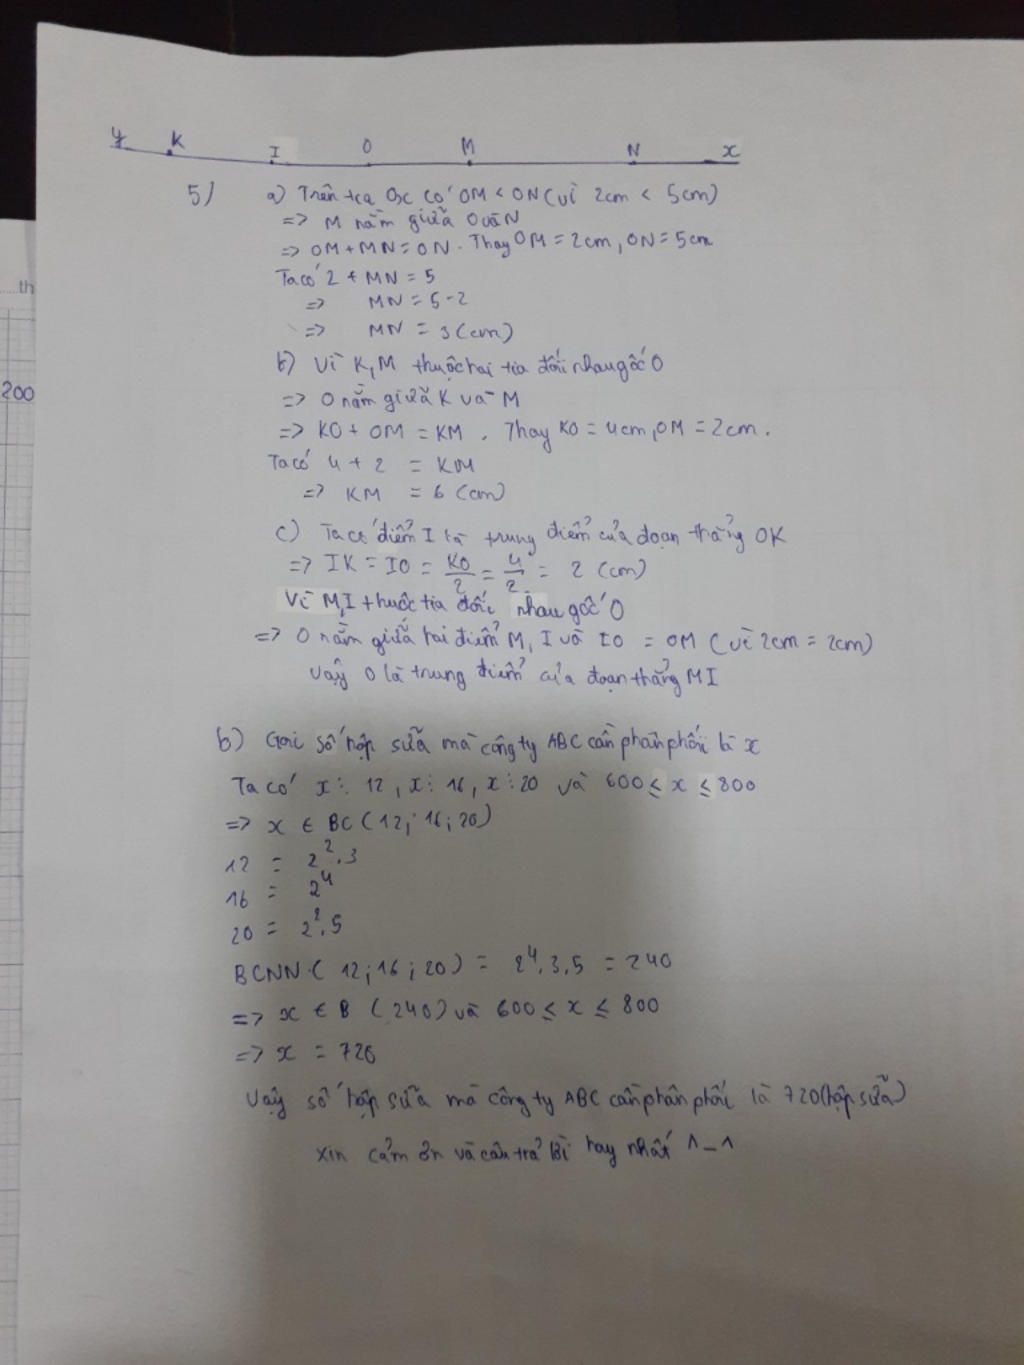 y K I O M N x
5) a) Trên tia Ox có OM < ON (vì 2cm < 5cm)
=> M nằm giữa O và N
=> OM + MN = ON. Thay OM = 2cm, ON = 5cm
Ta có 2 + MN = 5
=> MN = 5 - 2
=> MN = 3 (cm)
b) Vì K, M thuộc hai tia đối nhau gốc O
=> O nằm giữa K và M
=> KO + OM = KM. Thay KO = 4cm, OM = 2cm.
Ta có 4 + 2 = KM
=> KM = 6 (cm)
c) Ta có điểm I là trung điểm của đoạn thẳng OK
=> IK = IO = KO/2 = 4/2 = 2 (cm)
Vì M, I thuộc tia đối nhau gốc O
=> O nằm giữa hai điểm M, I và IO = OM (vì 2cm = 2cm)
Vậy O là trung điểm của đoạn thẳng MI
6) Gọi số hộp sữa mà công ty ABC cần phân phối là x
Ta có x ⋮ 12, x ⋮ 16, x ⋮ 20 và 600 ≤ x ≤ 800
=> x ∈ BC (12; 16; 20)
12 = 2².3
16 = 2⁴
20 = 2².5
BCNN (12; 16; 20) = 2⁴.3.5 = 240
=> x ∈ B (240) và 600 ≤ x ≤ 800
=> x = 720
Vậy số hộp sữa mà công ty ABC cần phân phối là 720 (hộp sữa)
xin cảm ơn và câu trả lời hay nhất ^_^
th
200